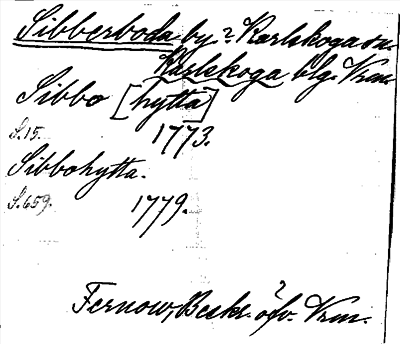 Sibberboda by ? Karlskoga sn.
Karlskoga blg. Vrm.
Sibbo [hytta]
S. 15. 1773.
Sibbohytta.
S. 659. 1779.
Fernow, Beskr. öfv. Vrm.